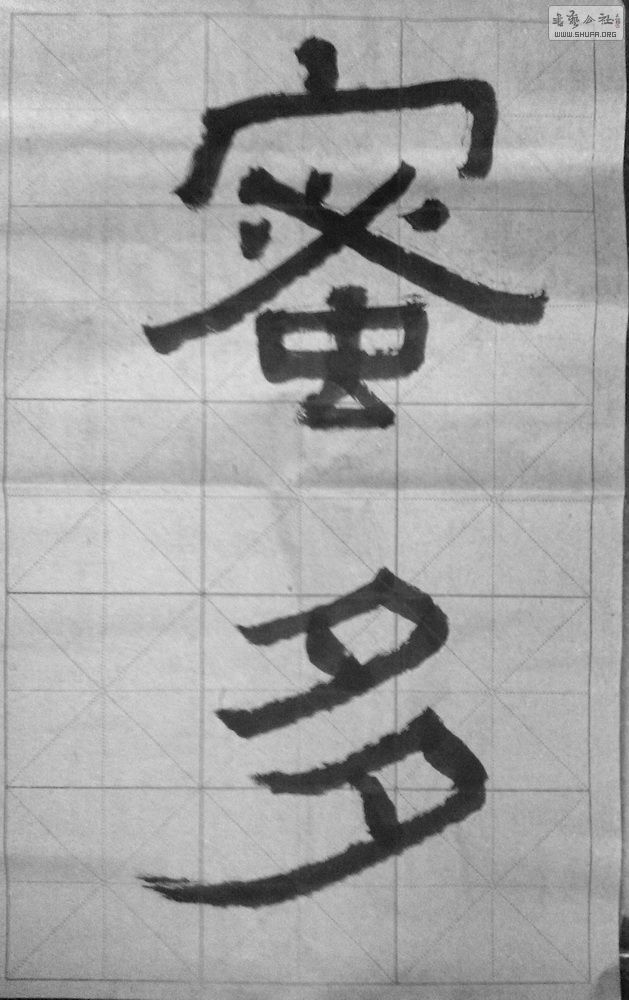 蜜多
書藝公社
WWW.SHUFA.ORG